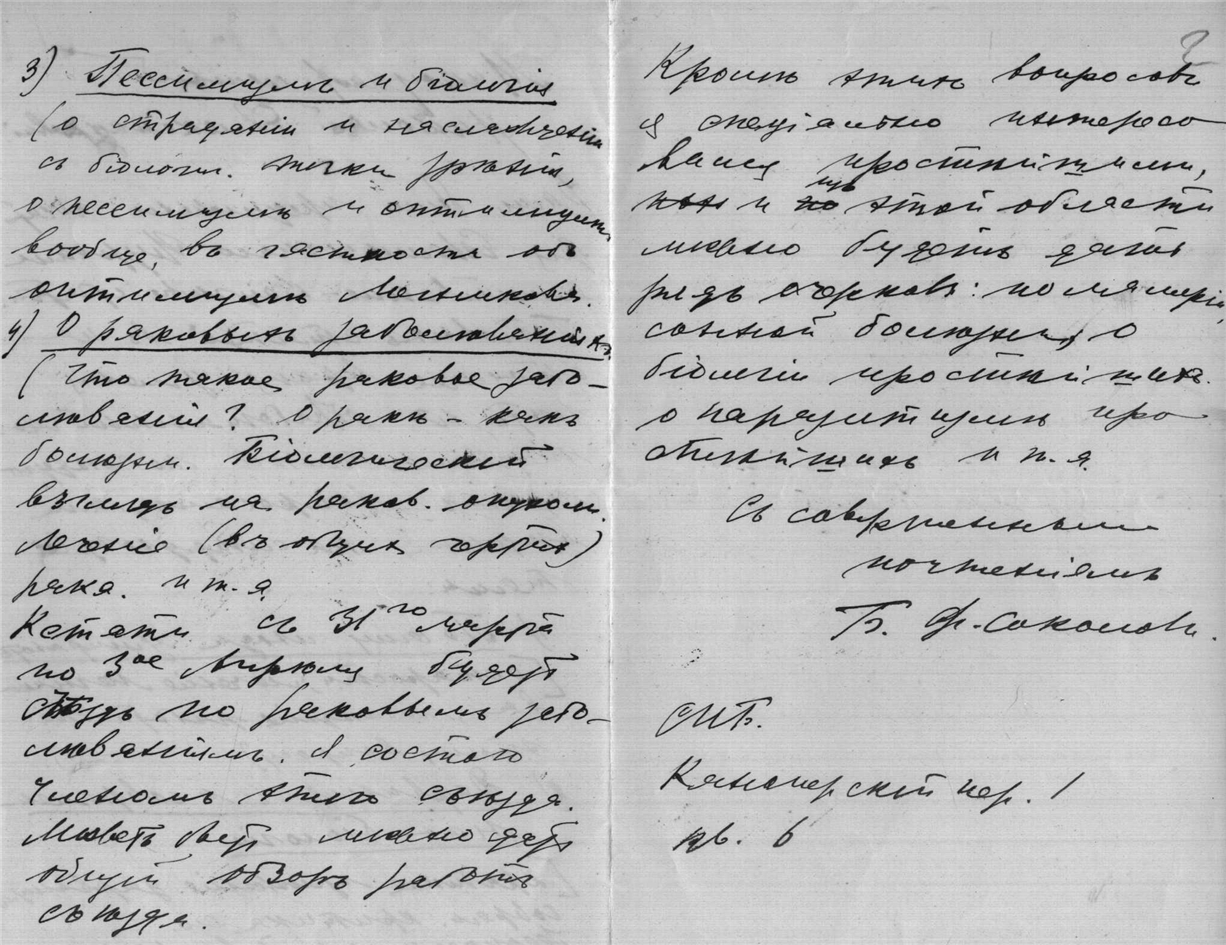 3) Пессимизмъ и біологія
(о страданіи и наслажденіи
съ біологич. точки зрѣнія,
о пессимизмѣ и оптимизмѣ
вообще, въ частности объ
оптимизмѣ Мечникова.
4) О раковыхъ заболѣваніяхъ.
(Что такое раковое забо-
лѣваніе? О ракѣ - какъ
болѣзни. Біологическій
взглядъ на раков. опухоли.
Леченіе (въ общихъ чертахъ)
рака. и т. д.
Кстати съ 31го марта
по 3ье Апрѣля будетъ
съѣздъ по раковымъ забо-
лѣваніямъ. Я состою
членомъ этого съѣзда.
Можетъ быть можно дать
общій обзоръ работъ
съѣзда.
2
Кромѣ этихъ вопросовъ
я спеціально интересо
вался простѣйшими,
и изъ этой области
можно будетъ дать
рядъ очерковъ: по маляріи,
сонной болѣзни, о
біологіи простѣйшихъ.
о паразитизмѣ про
стѣйшихъ и т. д.
Съ совершеннымъ
почтеніемъ
Б. Ф. Соколовъ.
СПБ.
Канонерскій пер. 1
кв. 6